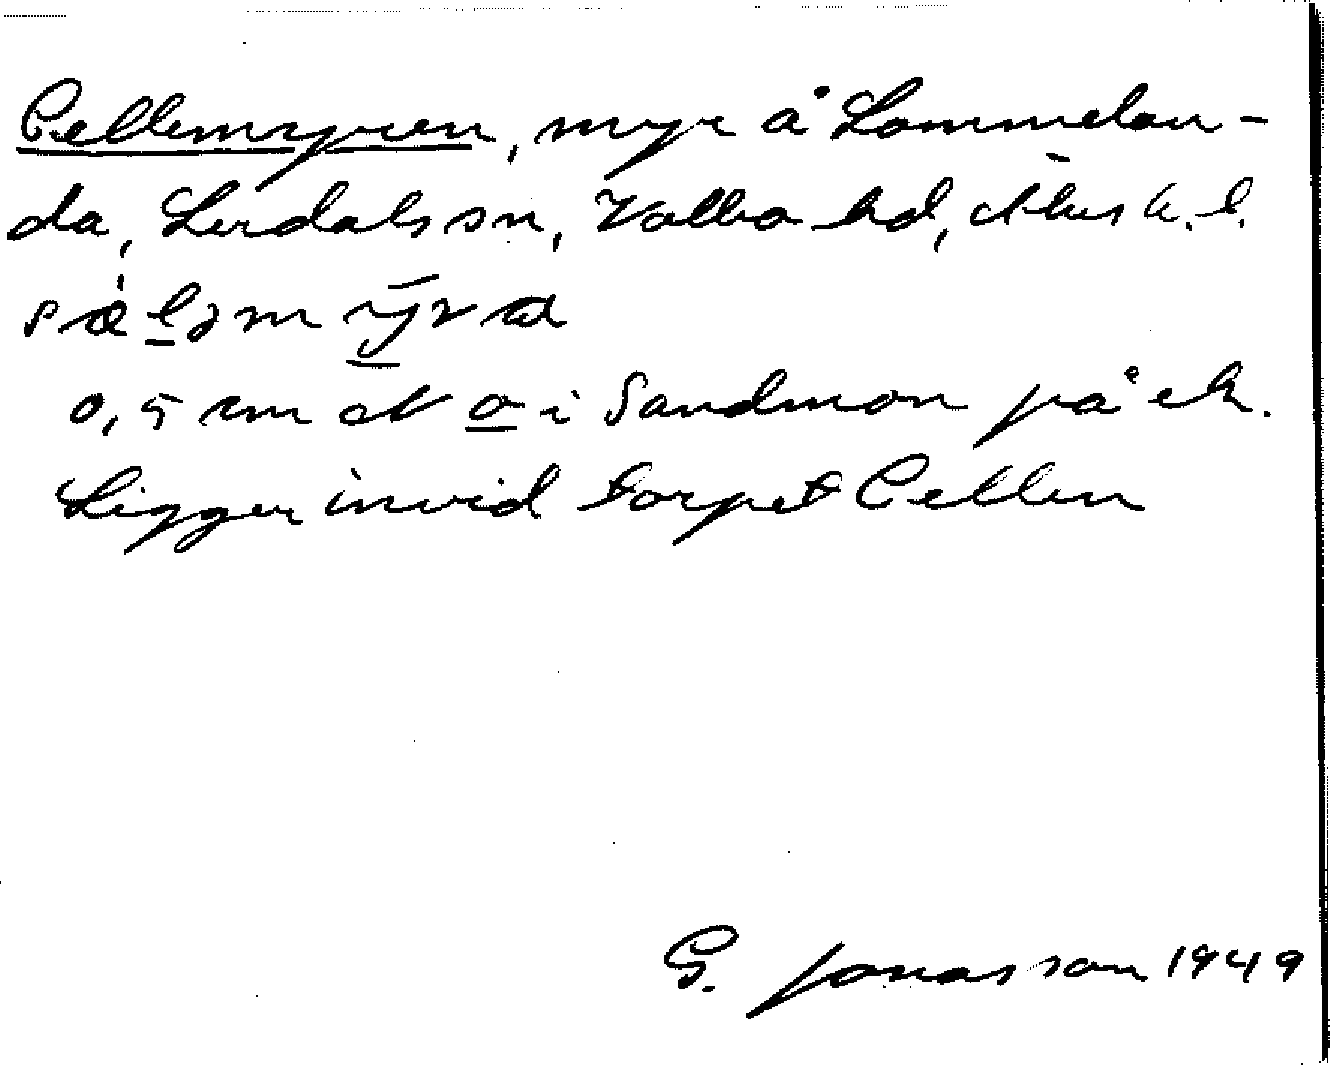 Cellemyren, myr å Lommelan-
da, Lerdals sn, Valbo hd, Älvsb. l.
0,5 cm N o i Sandmon på ek.
Ligger invid torpet Cellen
G. Jonasson 1949